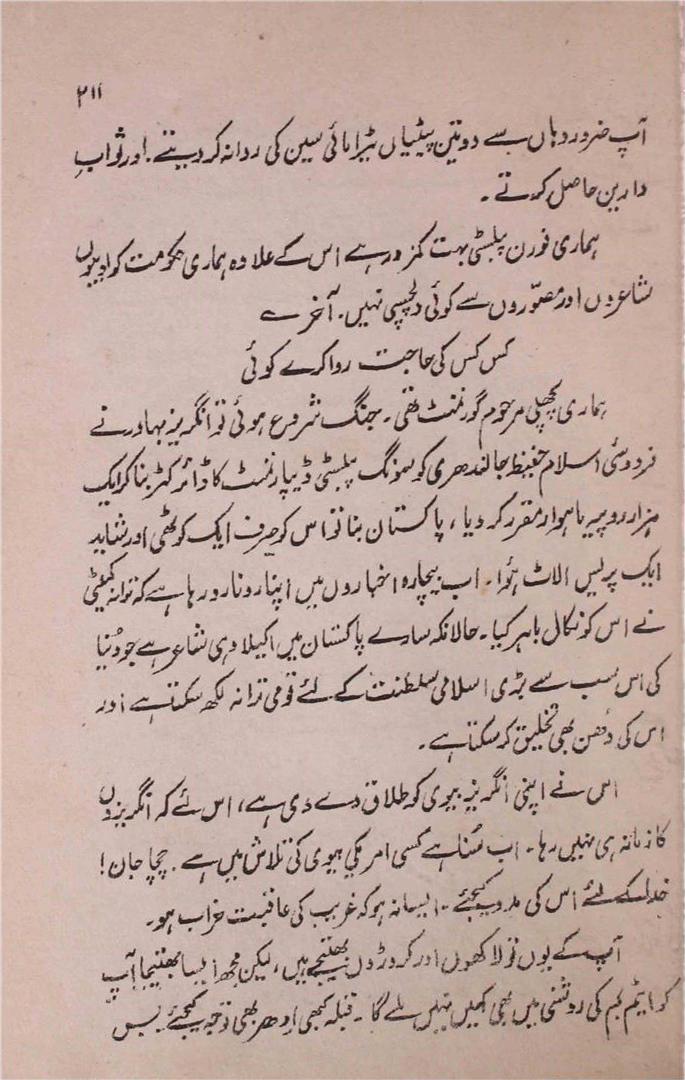 ۲۱۱
آپ ضرور وہاں سے دو تین پیٹیاں ٹیرامائی سین کی روانہ کر دیتے۔ اور ثوابِ
دارین حاصل کرتے۔
ہماری فورن پبلسٹی بہت کمزور ہے اس کے علاوہ ہماری حکومت کو ادیبوں
شاعروں اور مصوّروں سے کوئی دلچسپی نہیں۔ آخر ؎
کس کس کی حاجت روا کرے کوئی
ہماری پچھلی مرحوم گورنمنٹ تھی۔ جنگ شروع ہوئی تو انگریز بہادر نے
فردوسیٔ اسلام حفیظ جالندھری کو سونگ پبلسٹی ڈیپارٹمنٹ کا ڈائرکٹر بنا کر ایک
ہزار روپیہ ماہوار مقرر کر دیا، پاکستان بنا تو اس کو صرف ایک کوٹھی اور شاید
ایک پریس الاٹ ہُوا۔ اب بیچارہ اخباروں میں اپنا رونا رو رہا ہے کہ ترانہ کمیٹی
نے اس کو نکال باہر کیا۔ حالانکہ سارے پاکستان میں اکیلا وہی شاعر ہے جو دُنیا
کی اس سب سے بڑی اسلامی سلطنت کے لئے قومی ترانہ لکھ سکتا ہے اور
اس کی دُھن بھی تخلیق کر سکتا ہے۔
اس نے اپنی انگریز بیوی کو طلاق دے دی ہے، اس لئے کہ انگریزوں
کا زمانہ ہی نہیں رہا۔ اب سُنا ہے کسی امریکی بیوی کی تلاش میں ہے۔ چچا جان!
خدا کے لئے اس کی مدد کیجئے۔ ایسا نہ ہو کہ غریب کی عاقبت خراب ہو۔
آپ کے یوں تو لاکھوں اور کروڑوں بھتیجے ہیں، لیکن مجھ ایسا بھتیجا آپ
کو ایٹم بم کی روشنی میں بھی کہیں نہیں ملے گا۔ قبلہ کبھی اِدھر بھی توجہ کیجئے بس